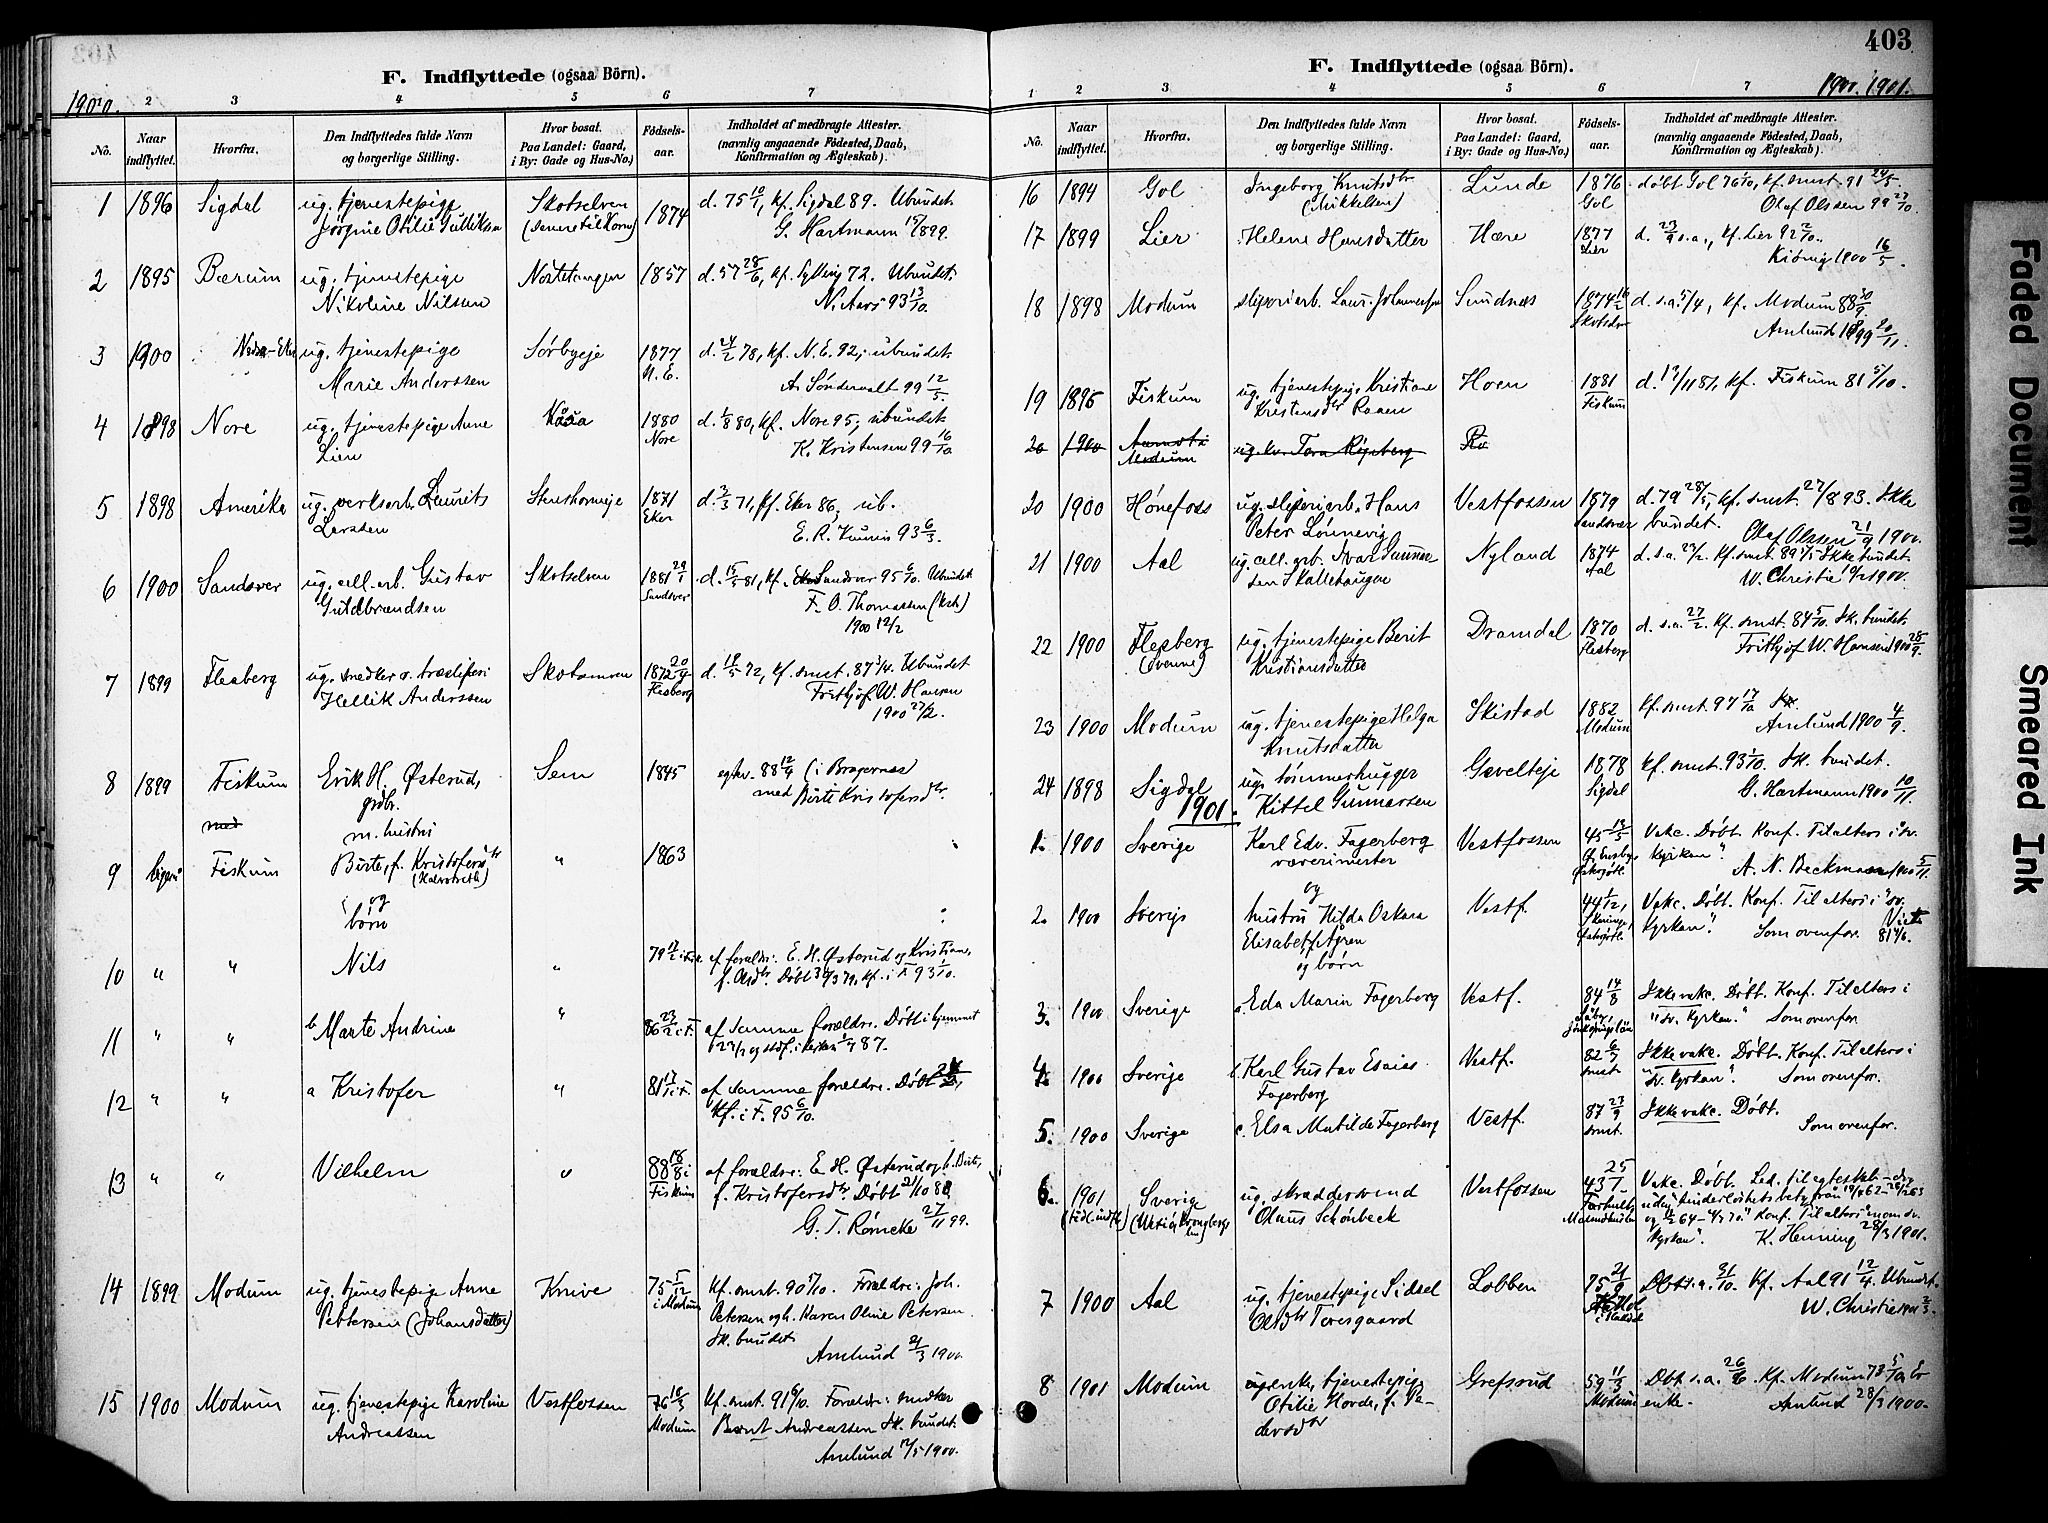 403
F. Indflyttede (ogsaa Börn).
1900.
2 3 4 5 6 7
No. Naar indflyttet. Hvorfra. Den Indflyttedes fulde Navn og borgerlige Stilling. Hvor bosat. Paa Landet: Gaard, i By: Gade og Hus-No.) Fødsels-aar. Indholdet af medbragte Attester. (navnlig angaaende Fødested, Daab, Konfirmation og Ægteskab).
1 1896 Sigdal ug. tjenestepige Skotselven 1874 d. 75 10/1, kf. Sigdal 89. Ubundet.
Jörgine Otilie Gulliksen (senere til Korn) G. Hartmann 15/1 899.
2 1895 Bærum ug. tjenestepige 1857 d. 57 28/6, kf. Sylling 72. Ubundet.
Nikoline Nilsen N. Aars 93 13/10.
3 1900 Nedre-Eker ug. tjenestepige Sørbyeje 1877 d. 24/2 78, kf. N. E. 92, ubundet
Marie Anderssen N. E. A. Søndervalt 99 12/5.
4 1898 Nore ug. tjenestepige Anne 1880 d. 1/8 80, kf. Nore 95; ubundet
Lien Nore K. Kristensen 99 16/10
5 1898 Amerika ug. verksarb. Laurits 1871 d. 3/3 71, kf. Eker 86, ub.
Larssen Eker 93 6/3.
6 1900 Sandsver ug. cell. arb. Gustav Skotselven 1881 29/1 d. 15/5 81, kf. Sandsver 95 6/10. Ubundet
Guldbrandsen Sandsver F. O. Thomassen
1900 12/2
7 1899 Flesberg ug. snedker o. træsliperi 1872 20/4 d. 19/5 72, kf. smst. 87 3/4. Ubundet
Hellik Anderssen Flesberg Frithjof W. Hansen
1900 27/2.
8 1899 Fiskum Erik H. Østerud, Sem 1845 egtev. 88 12/4 (i Bragernes
med grdbr. med Birte Kristofersdtr.
m. hustru
9 Fiskum Birte, f. Kristofersdtr " 1863
og
börn
10 " " Nils " 79 17/2 i F. af forældre: E. H. Østerud og Kristiane,
Døbt 30/3 79, kf. i F 93 1/10.
11 " " b Marte Andrine " 86 23/2 i F. af samme forældre. Døbt i hjemmet
12 " " a Kristofer " 81 17/1 i F. af samme forældre. Døbt
kf. i F. 95 6/10.
13 " " Vilhelm " 88 18/8 i Fiskum af forældre: E. H. Østerud og h. Birte,
f. Kristofersdtr. Døbt 21/10 88
G. T. Römcke 27/11 99.
14 1899 Modum ug. tjenestepige Anne Knive 75 5/12 i Modum kf. smst. 90 5/10. Forældre: Joh.
Pettersen (Johansdatter) Petersen og h. Karen Oline Petersen.
Ik. bundet
Amlund 21/3 1900.
15 1900 Modum ug. tjenestepige Karoline Vestfossen 76 18/3 Modum kf. smst. 91 6/10. Forældre: snedker
Andreassen Bernt Andreassen Ik. bundet.
Amlund 12/5 1900.
F. Indflyttede (ogsaa Börn).
1900. 1901.
1 2 3 4 5 6 7
No. Naar indflyttet. Hvorfra. Den Indflyttedes fulde Navn og borgerlige Stilling. Hvor bosat. Paa Landet: Gaard, i By: Gade og Hus-No.) Fødsels-aar. Indholdet af medbragte Attester. (navnlig angaaende Fødested, Daab, Konfirmation og Ægteskab).
16 1894 Gol Ingeborg Knutsdtr Lunde 1876 døbt Gol 76 1/10, kf. smst. 91 24/5
(Mikkelsen) Gol Olaf Olssen 99 27/10.
17 1899 Lier Helene Hansdatter Hære 1877 d. 23/9 s.a., kf. Lier 92 2/10.
Lier Kiönig 1900 16/5.
18 1898 Modum sliperiarb. Laur. Johannessen Sundnes 1874 16/2 d. s.a. 5/4, kf. Modum 88 30/9.
Amlund 1899 20/11.
19 1895 Fiskum ug. tjenestepige Kristiane Hoen 1881 d. 13/11 81, kf. Fiskum 81 5/10.
Kristensdtr Raaen Fiskum
20 1900 Modum
20 1900 Hönefoss ug. sliperiarb. Hans Vestfossen 1879 d. 79 28/5, kf. smst. 27/8 93. Ikke
Peter Lönnevig Sandsvær bundet. Olaf Olssen 21/9 1900.
21 1900 Aal ug. cell. arb. Ivar Gunnar Nyland 1874 d. s.a. 23/2. kf. smst. 89 Ikke bundet.
sen Skallehaugen Aal W. Christie 1900.
22 1900 Flesberg ug. tjenestepige Berit Dramdal 1870 d. s.a. 27/2. kf. smst. 84 5/10. Ik. bundet.
(Svenne) Kristiansdatter Flesberg Frithjof W. Hansen 1900 28/9.
23 1900 Modum ug. tjenestepige Helga Skistad 1882 kf. smst. 97 17/10
Knutsdatter Modum Amlund 1900 4/9.
24 1898 Sigdal ug. tømmerhugger 1878 kf. smst. 93 1/10. Ik. bundet.
Kittel Gunnarsen Sigdal G. Hartmann 1900 10/11.
1901.
1. 1900 Sverige Karl Edv. Fagerberg Vestfossen 45 13/5 Vakc. Döbt. Konf. Til alters i "sv.
værerimester kyrkan". A. N. Beckman 1900 5/11.
og
2. 1900 Sverige hustru Hilda Oskara Vestf. 44 1/12, Vakc. Döbt. Konf. Til alters i "sv.
Elisabet, f. Ågren kyrkan". Som ovenfor.
og börn
3. 1900 Sverige a. Eda Maria Fagerberg Vestf. 84 14/8 Ikke vakc. Döbt. Konf. Til alters i
"sv. kyrkan." Som ovenfor.
4. 1900 Sverige b. Karl Gustav Esaias Vestf. 82 6/7 Ikke vakc. Döbt. Konf. Til alters i
Fagerberg smst. "sv. kyrkan". Som ovenfor.
5. 1900 Sverige c. Elsa Matilde Fagerberg Vestf. 87 23/9 Ikke vakc. Döbt.
smst. Som ovenfor.
6. 1901 Sverige ug. skræddersvend Vestfossen 43 25/1 Vakc. Döbt. Led. til egteskab
Olaus Schönbeck Konf. Til alters
kyrkan". K. Henning 28/3 1901.
7 1900 Aal ug. tjenestepige Sidsel Lobben 75 21/9 Døbt s.a. 31/10. Kf. Aal 91 12/4. Ubundet.
Olsdtr Toresgaard W. Christie 1901 2/3.
8 1901 Modum enke, tjenestepige Grefsrud 59 11/3 Dbt s.a. 26/6 Kf. Modum 73 5/10 Er
Otilie Horde, f. Pe- Modum enke. Amlund 28/3 1900.
dersdtr
Faded Document
Smeared Ink